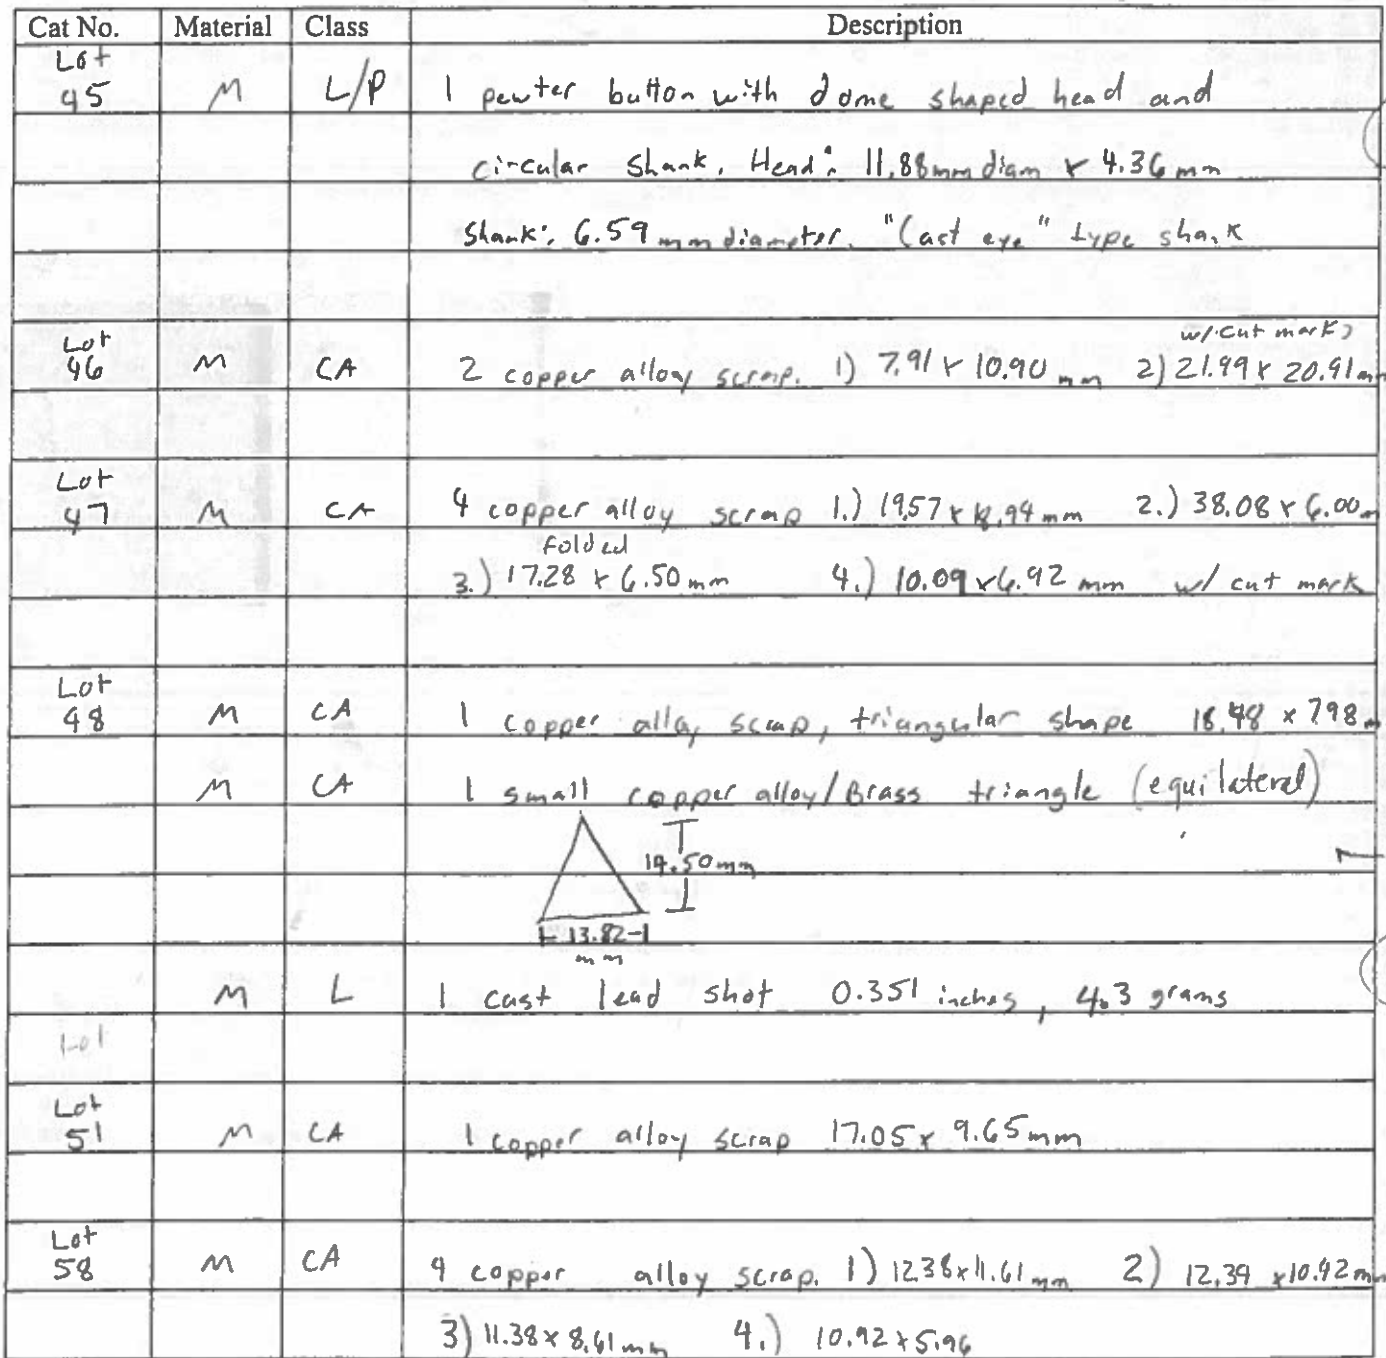 Cat No. Material Class Description
Lot 45 M L/P 1 pewter button with dome shaped head and
circular shank. Head: 11.88mm diam x 4.36 mm
Shank: 6.59 mm diameter. "Cast eye" type shank
w/ cut marks
Lot 46 M CA 2 copper alloy scrap. 1) 7.91 x 10.90 mm 2) 21.99 x 20.91 mm
Lot 47 M CA 4 copper alloy scrap 1.) 19.57 x 18.94 mm 2.) 38.08 x 6.00 m
folded
3.) 17.28 x 6.50 mm 4.) 10.09 x 6.92 mm w/ cut mark
Lot 48 M CA 1 copper alloy scrap, triangular shape 18.48 x 7.98 m
M CA 1 small copper alloy/Brass triangle (equilateral)
14.50 mm
13.82
mm
M L 1 cast lead shot 0.351 inches, 4.3 grams
Lot
Lot 51 M CA 1 copper alloy scrap 17.05 x 9.65 mm
Lot 58 M CA 4 copper alloy scrap. 1) 12.38 x 11.61 mm 2) 12.39 x 10.92 mm
3) 11.38 x 8.61 mm 4.) 10.92 x 5.96